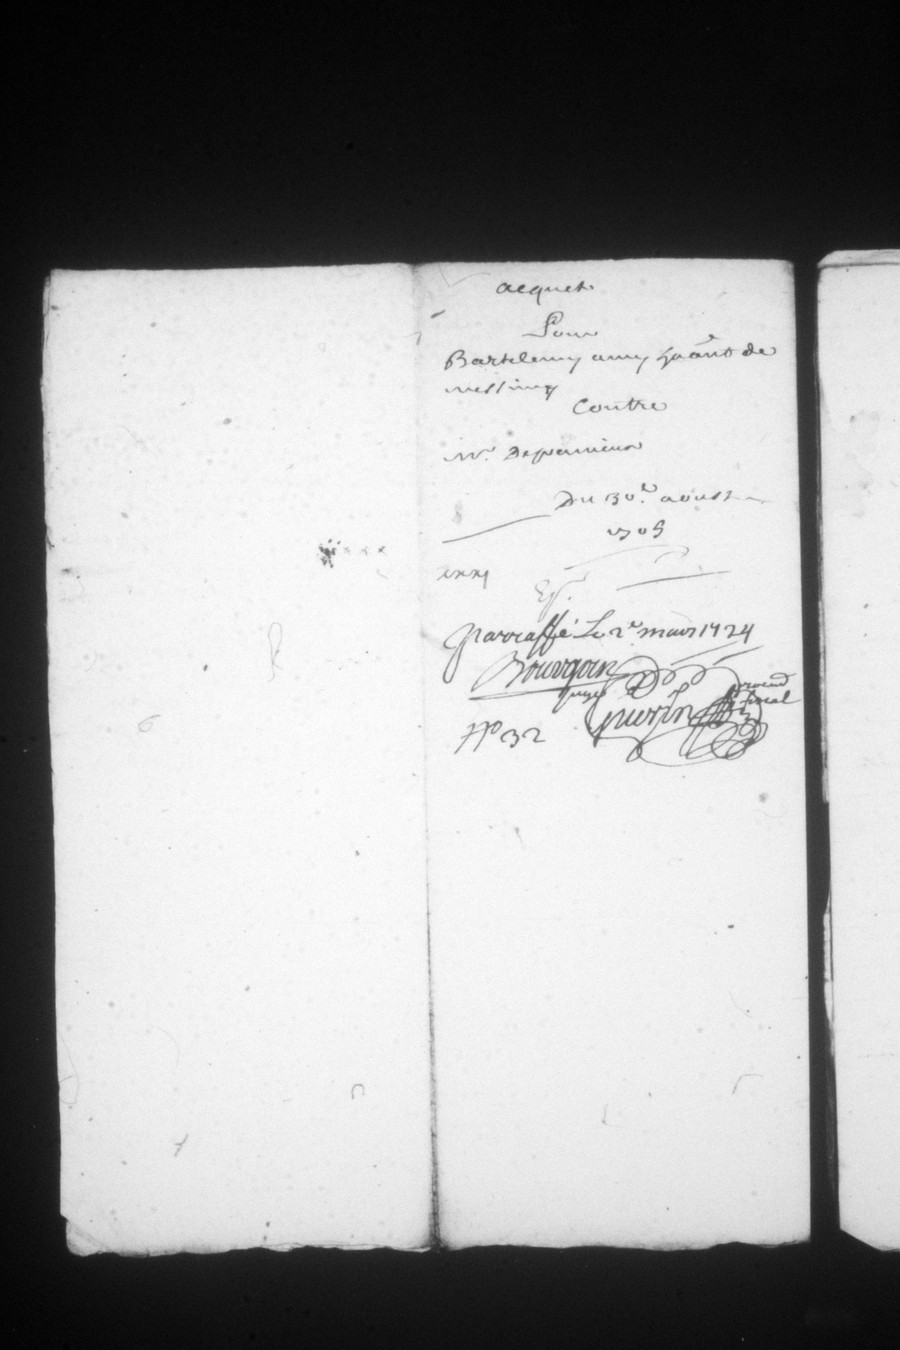 acquet
Pour
Bartelemy amy habānt de
messimy
Contre
Mr. Deparrieux
Du 30e. aoust
1705
parraffé Le 2e mars 1724
Bourgoin
juge
Guerin
procur
fiscal
No 32